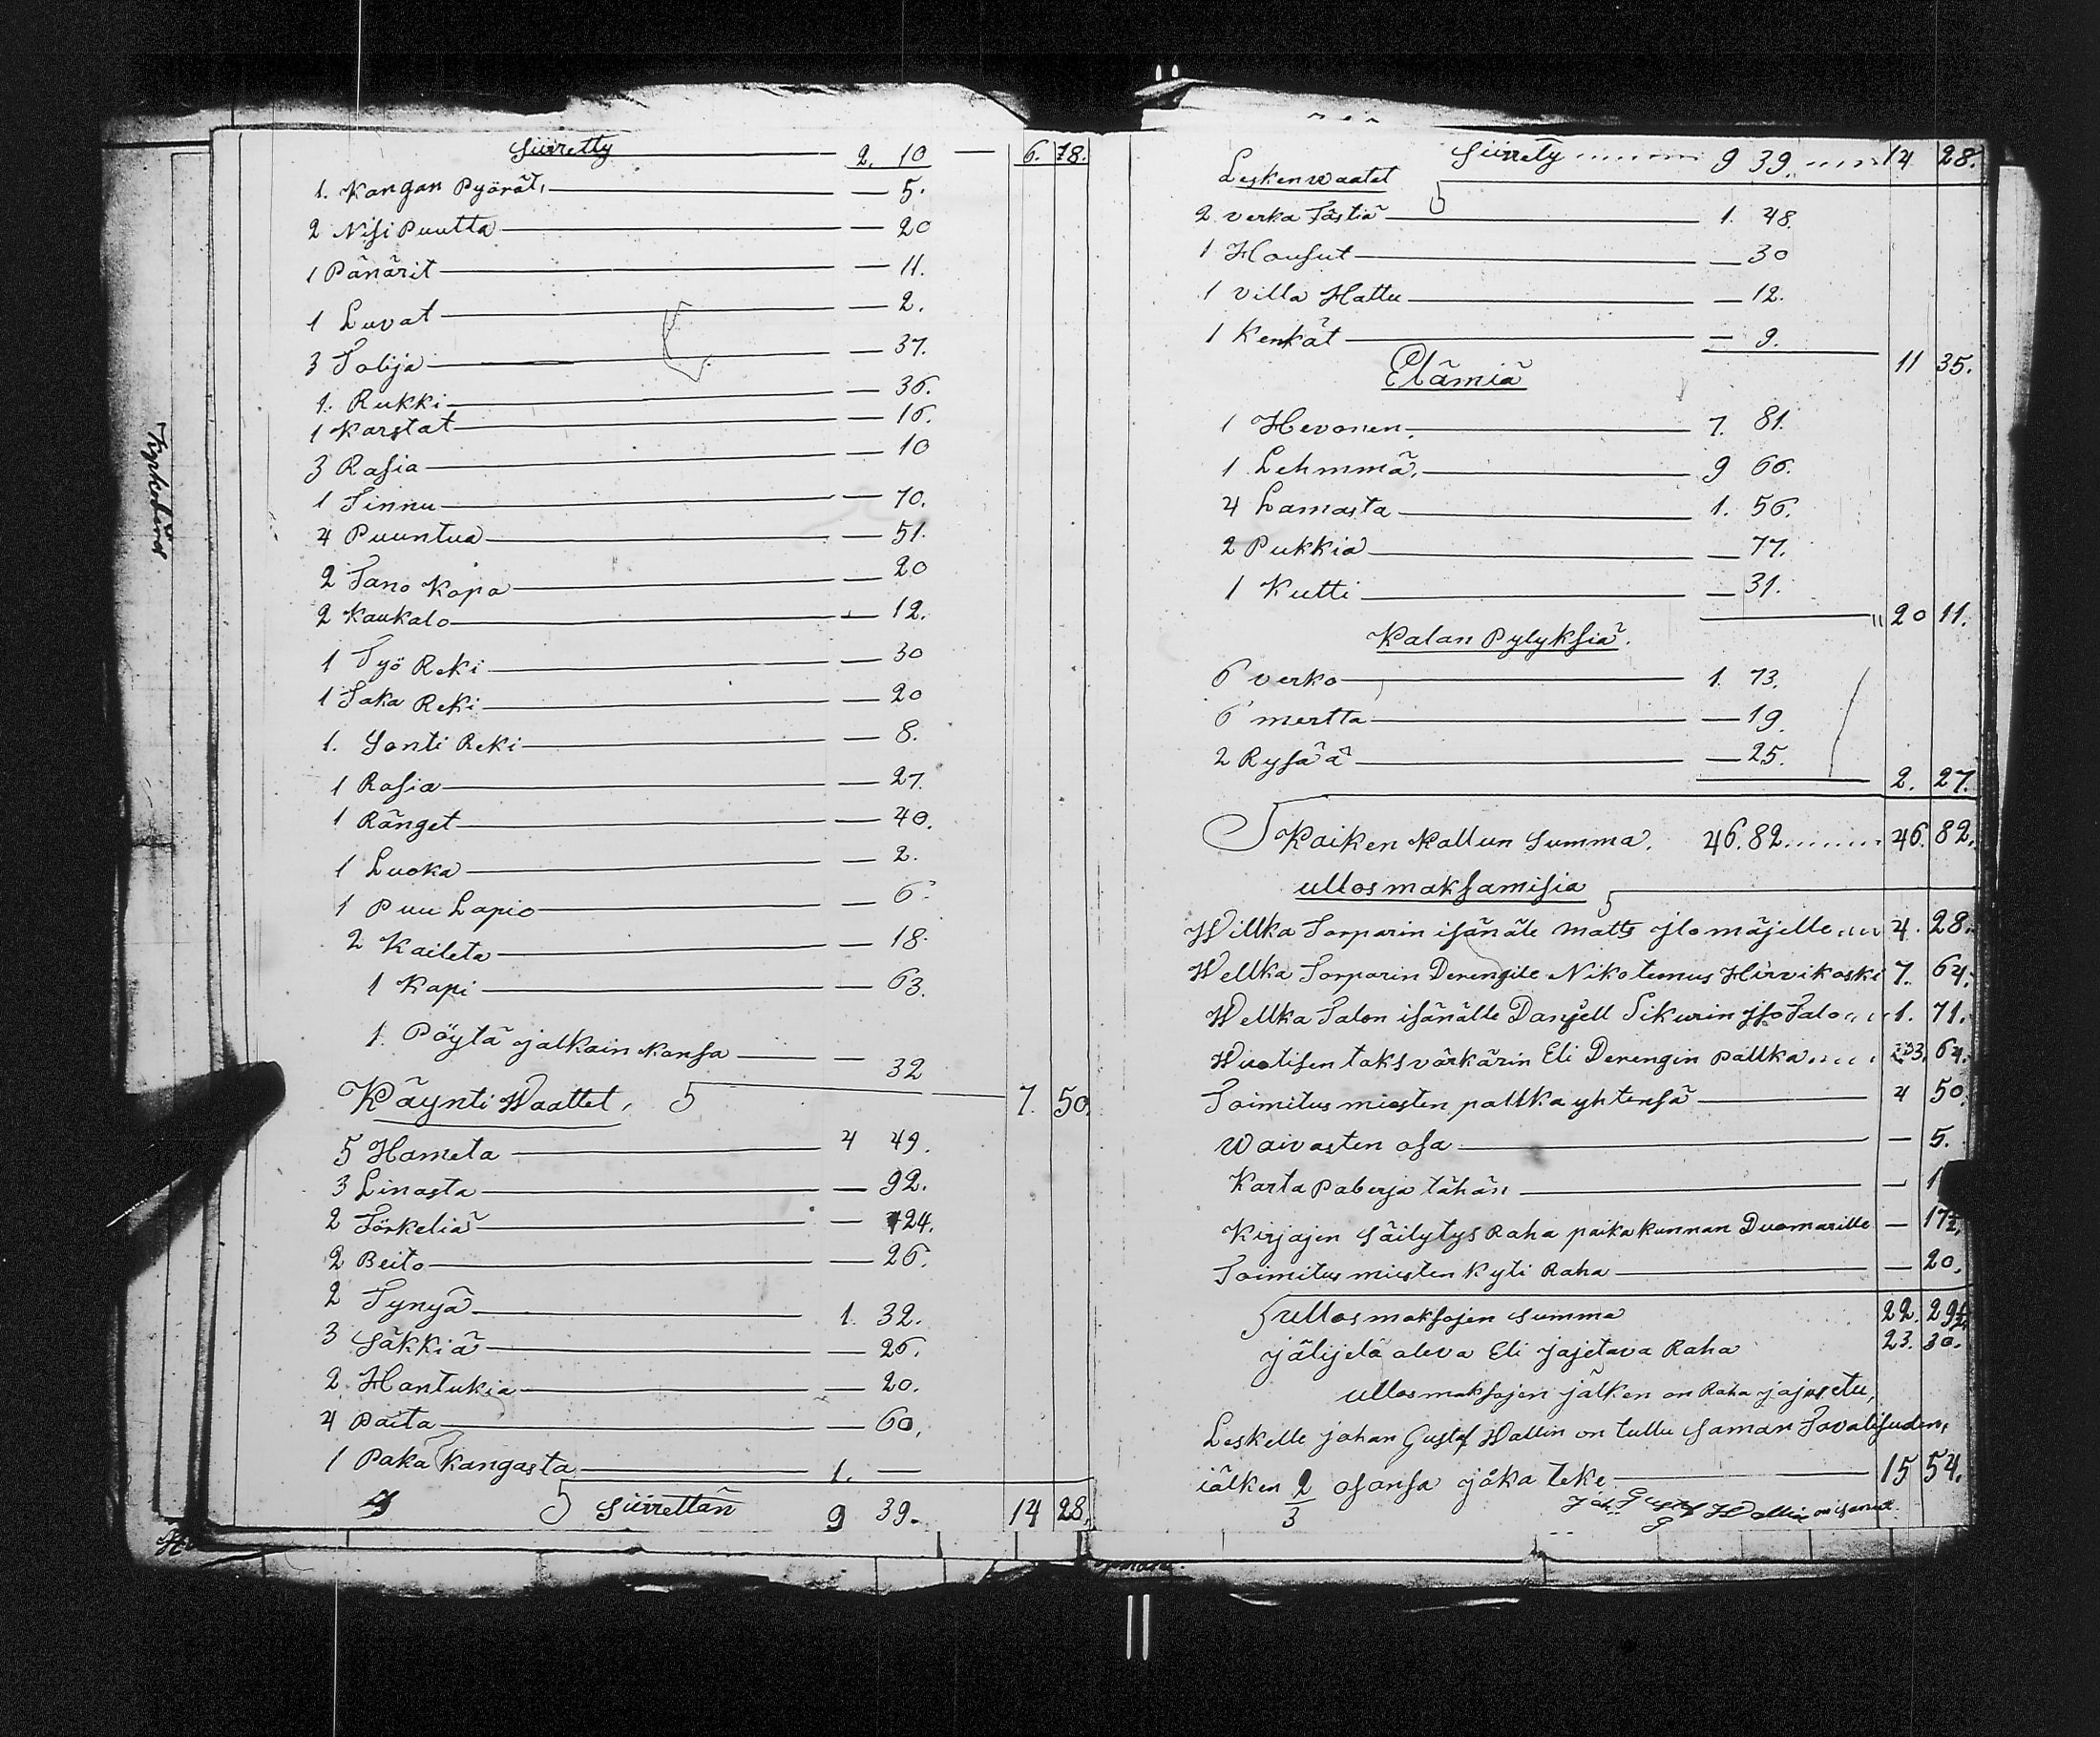 Siirretty — 2. 10 — 6. 78.
1. Kangan Pyörät, — 5.
2 Nisi Puutta — 20
1 Pänärit — 11.
1 Luvat — 2.
3 Solija — 37.
1. Rukki — 36.
1 Karstat — 16.
3 Rasia — 10
1 Tinnu — 70.
4 Puuntua — 51.
2 Tano Kopa — 20
2 Kaukalo — 12.
1 Työ Reki — 30
1 Saka Reki — 20
1. Sonti Reki — 8.
1 Rasia — 27.
1 Ränget — 40.
1 Luoka — 2.
1 Puu Lapio — 6.
2 Kaileta — 18.
1 Kapi — 63.
1. Pöytä jalkain kansa — 32
Käynti Waattet, — 7. 50.
5 Hameta — 4 49.
3 Linasta — 92.
2 Törkeliä — 24.
2 Beito — 26.
2 Tynyä — 1. 32.
3 Säkkiä — 26.
2 Hantukia — 20.
4 Paita — 60.
1 Paka Kangasta — 1. —
Siirrettän 9 39. 14 28.
Siirrety 9 39. 14 28.
Lesken waatet
2 verka Tästiä — 1. 48.
1 Housut — 30
1 villa Hattu — 12.
1 Kenkät — 9.
11 35.
Elämiä
1 Hevonen, — 7. 81.
1 Lehmmä, — 9 66.
4 Lamasta — 1. 56.
2 Pukkia — 77.
1 Kutti — 31.
20 11.
Kalan Pylyksiä.
6 verko — 1. 73.
6 mertta — 19.
2 Rysää — 25.
2. 27.
Kaiken Kallun Summa. 46.82 46. 82.
ullos maksamisia
Willka Torparin isänäle Matts jlomäjelle 4. 28.
Wellka Torparin Derengile Nikotemus Hirvikoski 7. 64.
Wellka Talon isänälle Danjell Sikurin jso Talo 1. 71.
Wuotisen taksvärkärin Eli Derengin pallka 3. 64.
Toimitus miesten pallka yhtensä — 4 50.
Waivasten osa — 5.
Karta paberja tähän — 1
Kirjajen Säilytys Raha paikakunnan Duomarille — 17½
Toimitus miesten Kyti Raha — 20.
ullos maksojen Summa 22. 29½
jälijelä oleva Eli jajetava Raha 23. 30.
ullos maksojen jälken on Raha jajosetu,
Leskelle johan Gustaf Wallin on tullu Saman Tavalisuden,
iälken 2/3 osansa jäka teke — 15 54.
Joh Gustaf Wallin